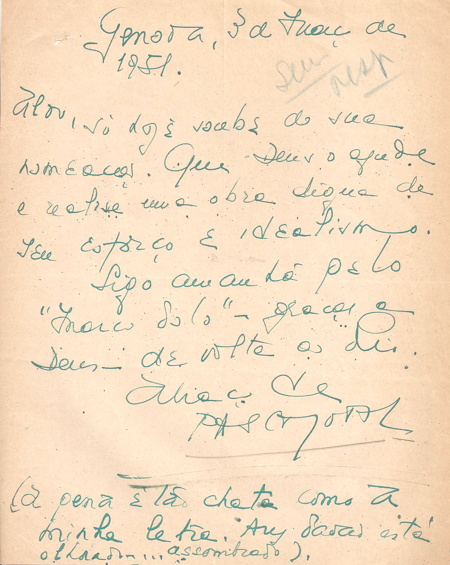 Genova, 3 de março de
1951.
sem
resp
só hoje soube de sua
nomeação. Que Deus o ajude
e realise uma obra digna de
seu esforço e idealismo.
Sigo amanhã pelo
"Marco Polo" – graças a
Deus – de volta ao Rio.
Abraço de
PASCHOAL
(a pena é tão chata como a
minha letra. Ary está
olhando... assombrado).